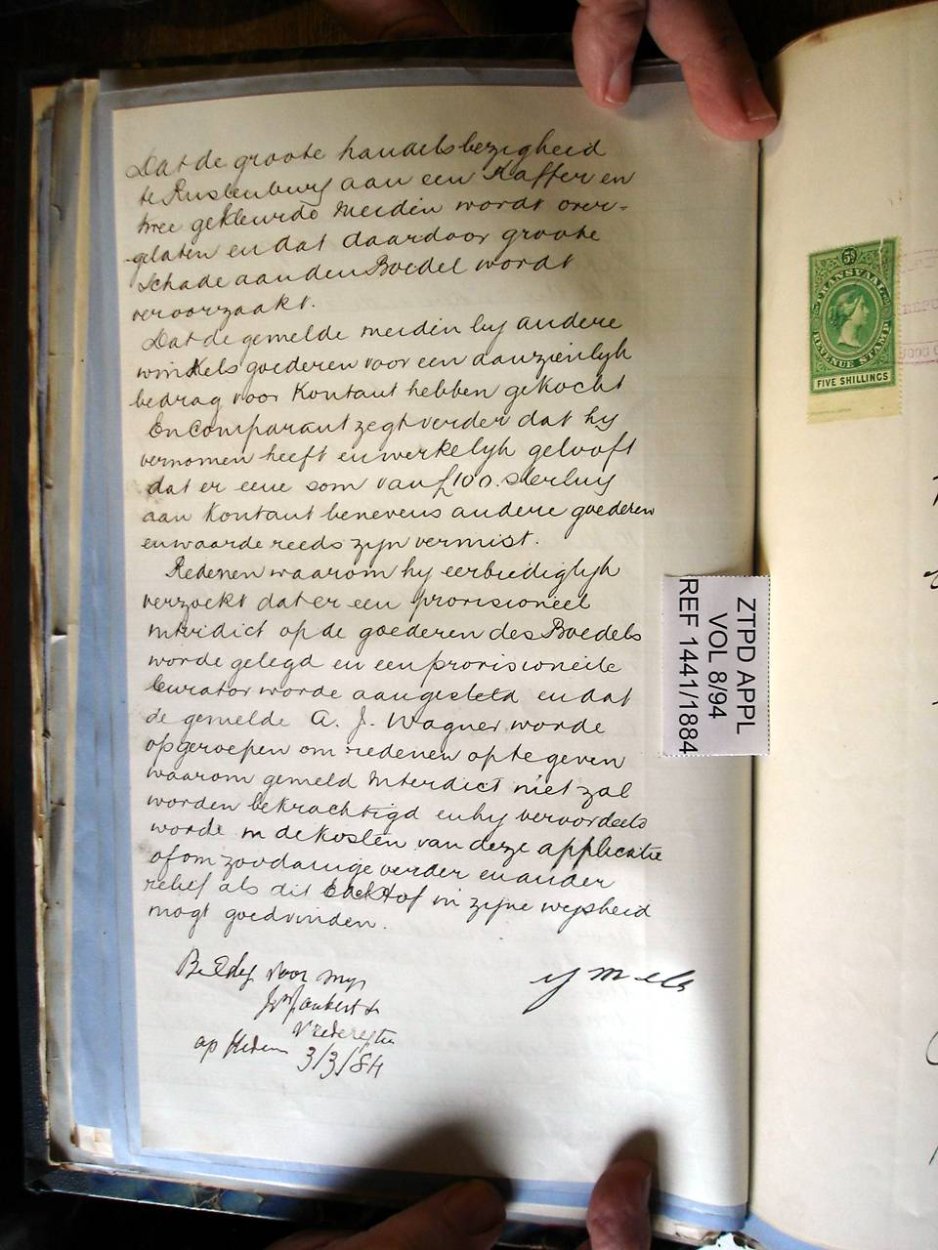 Dat de groote handelsbezigheid
te Rustenburg aan een Kaffer en
twee gekleurde meiden wordt over-
gelaten en dat daardoor groote
Schade aan den Boedel wordt
veroorzaakt.
Dat de gemelde meiden by andere
winkels goederen voor een aanzienlyk
bedrag voor Kontant hebben gekocht
En Comparant zegt verder dat hy
vernomen heeft en werkelyk gelooft
dat er eene som van £100. sterling
aan Kontant benevens andere goederen
en waarde reeds zyn vermist.
Redenen waarom hy eerbiediglyk
verzoekt dat er een provisioneel
interdict op de goederen des Boedels
worde gelegd en een provisioneele
Curator worde aangesteld en dat
de gemelde A. J. Wagner worde
opgeroepen om redenen op te geven
waarom gemeld interdict niet zal
worden bekrachtigd en hy veroordeeld
worde in de kosten van deze applicatie
of om zoodanige verder en ander
relief als dit Hof in zyne wysheid
mogt goedvinden.
Beëdigd voor my
Vrederegter
op Heden 3/3/84
TRANSVAAL
5S
REVENUE STAMP
FIVE SHILLINGS
ZTPD APPL
VOL 8/94
REF 1441/1884